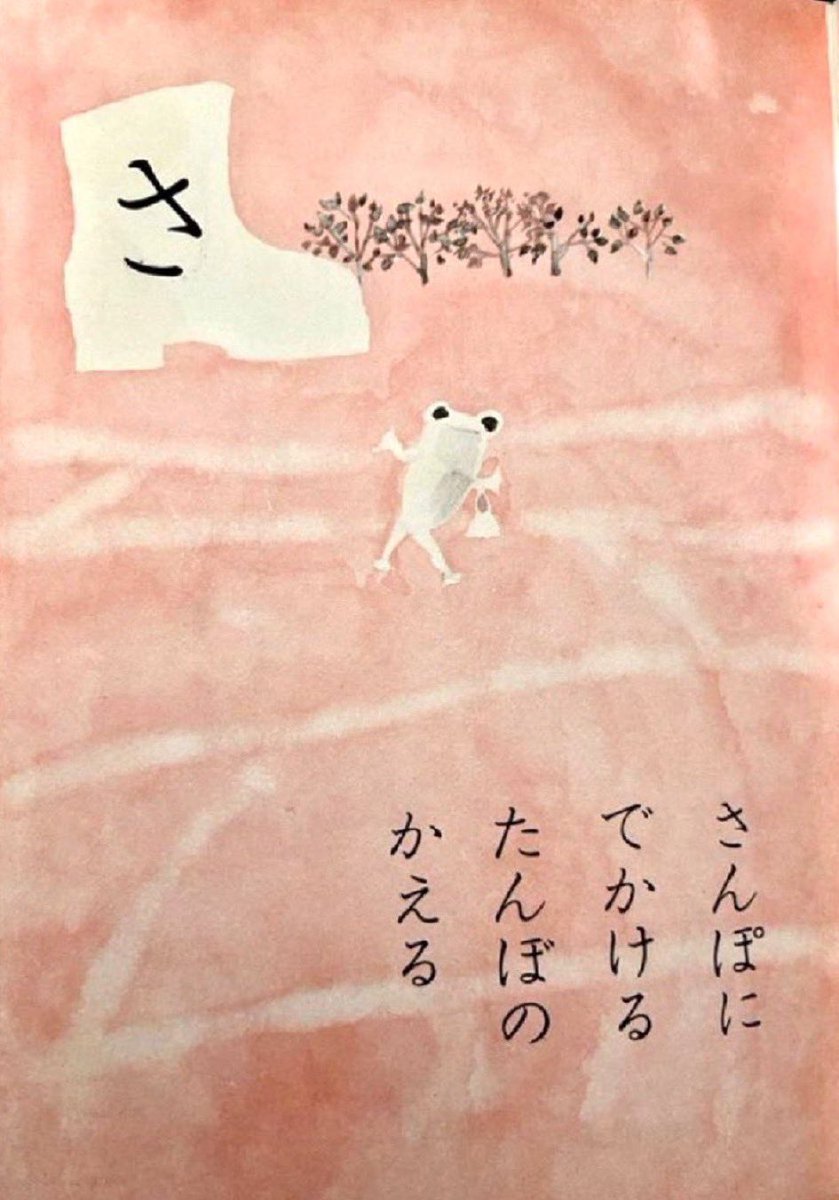 さ
さんぽに
でかける
たんぼの
かえる